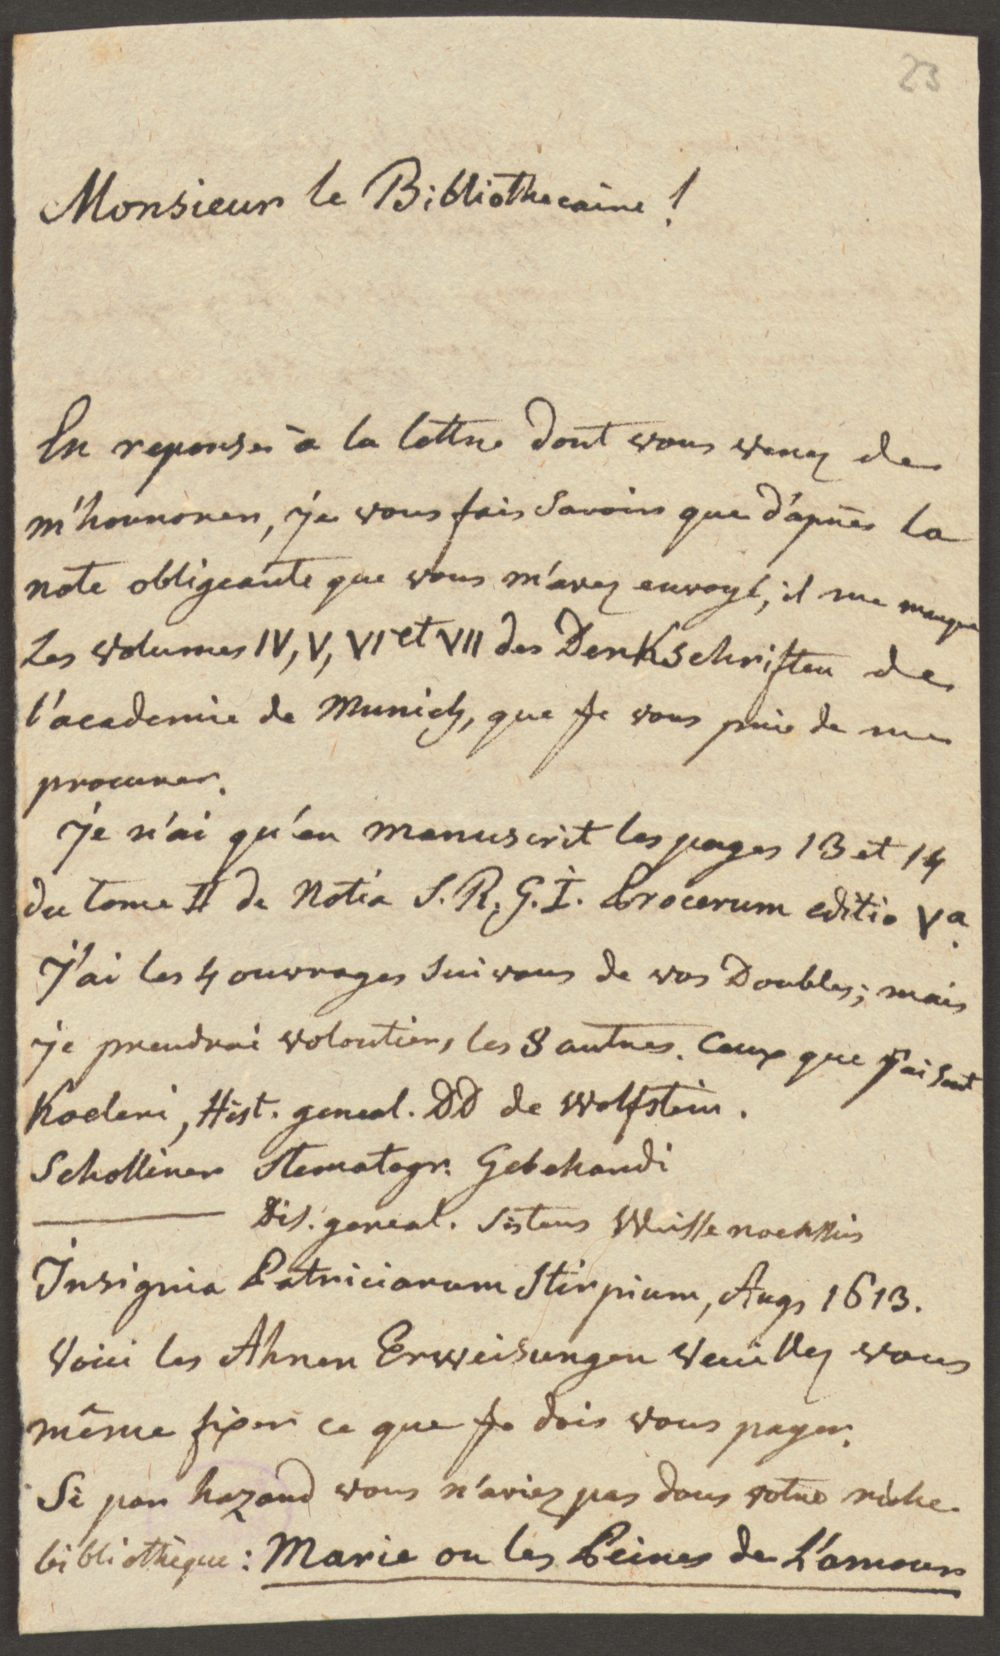 23
Monsieur le Bibliothecaire !
En reponse à la lettre dont vous venez de
m'hounorer, je vous fais savoir que d'après la
note obligeante que vous m'avez envoyé, il me manque
Les volumes IV, V, VI et VII des Denkschriften de
l'academie de Munich, que je vous prie de me
procurer.
Je n'ai qu'en manuscrit les pages 13 et 14
du tome II de Notia S. R. G. I. Procerum editio Va.
J'ai les 4 ouvrages suivans de vos Doubles; mais
je prendrai volontiers les 8 autres. Ceux que j'ai sont
Koeleri, Hist. geneal. DD de Wolfstein.
Scholliner Stematogr.
Dis. geneal. sistens
Insignia Patriciarum Stirpium, Augs 1613.
Voici les Ahnen Erweisungen veuillez vous
même fixer ce que je dois vous payer.
Si par hazard vous n'aviez pas dans votre riche
bibliothèque : Marie ou les Peines de L'amour